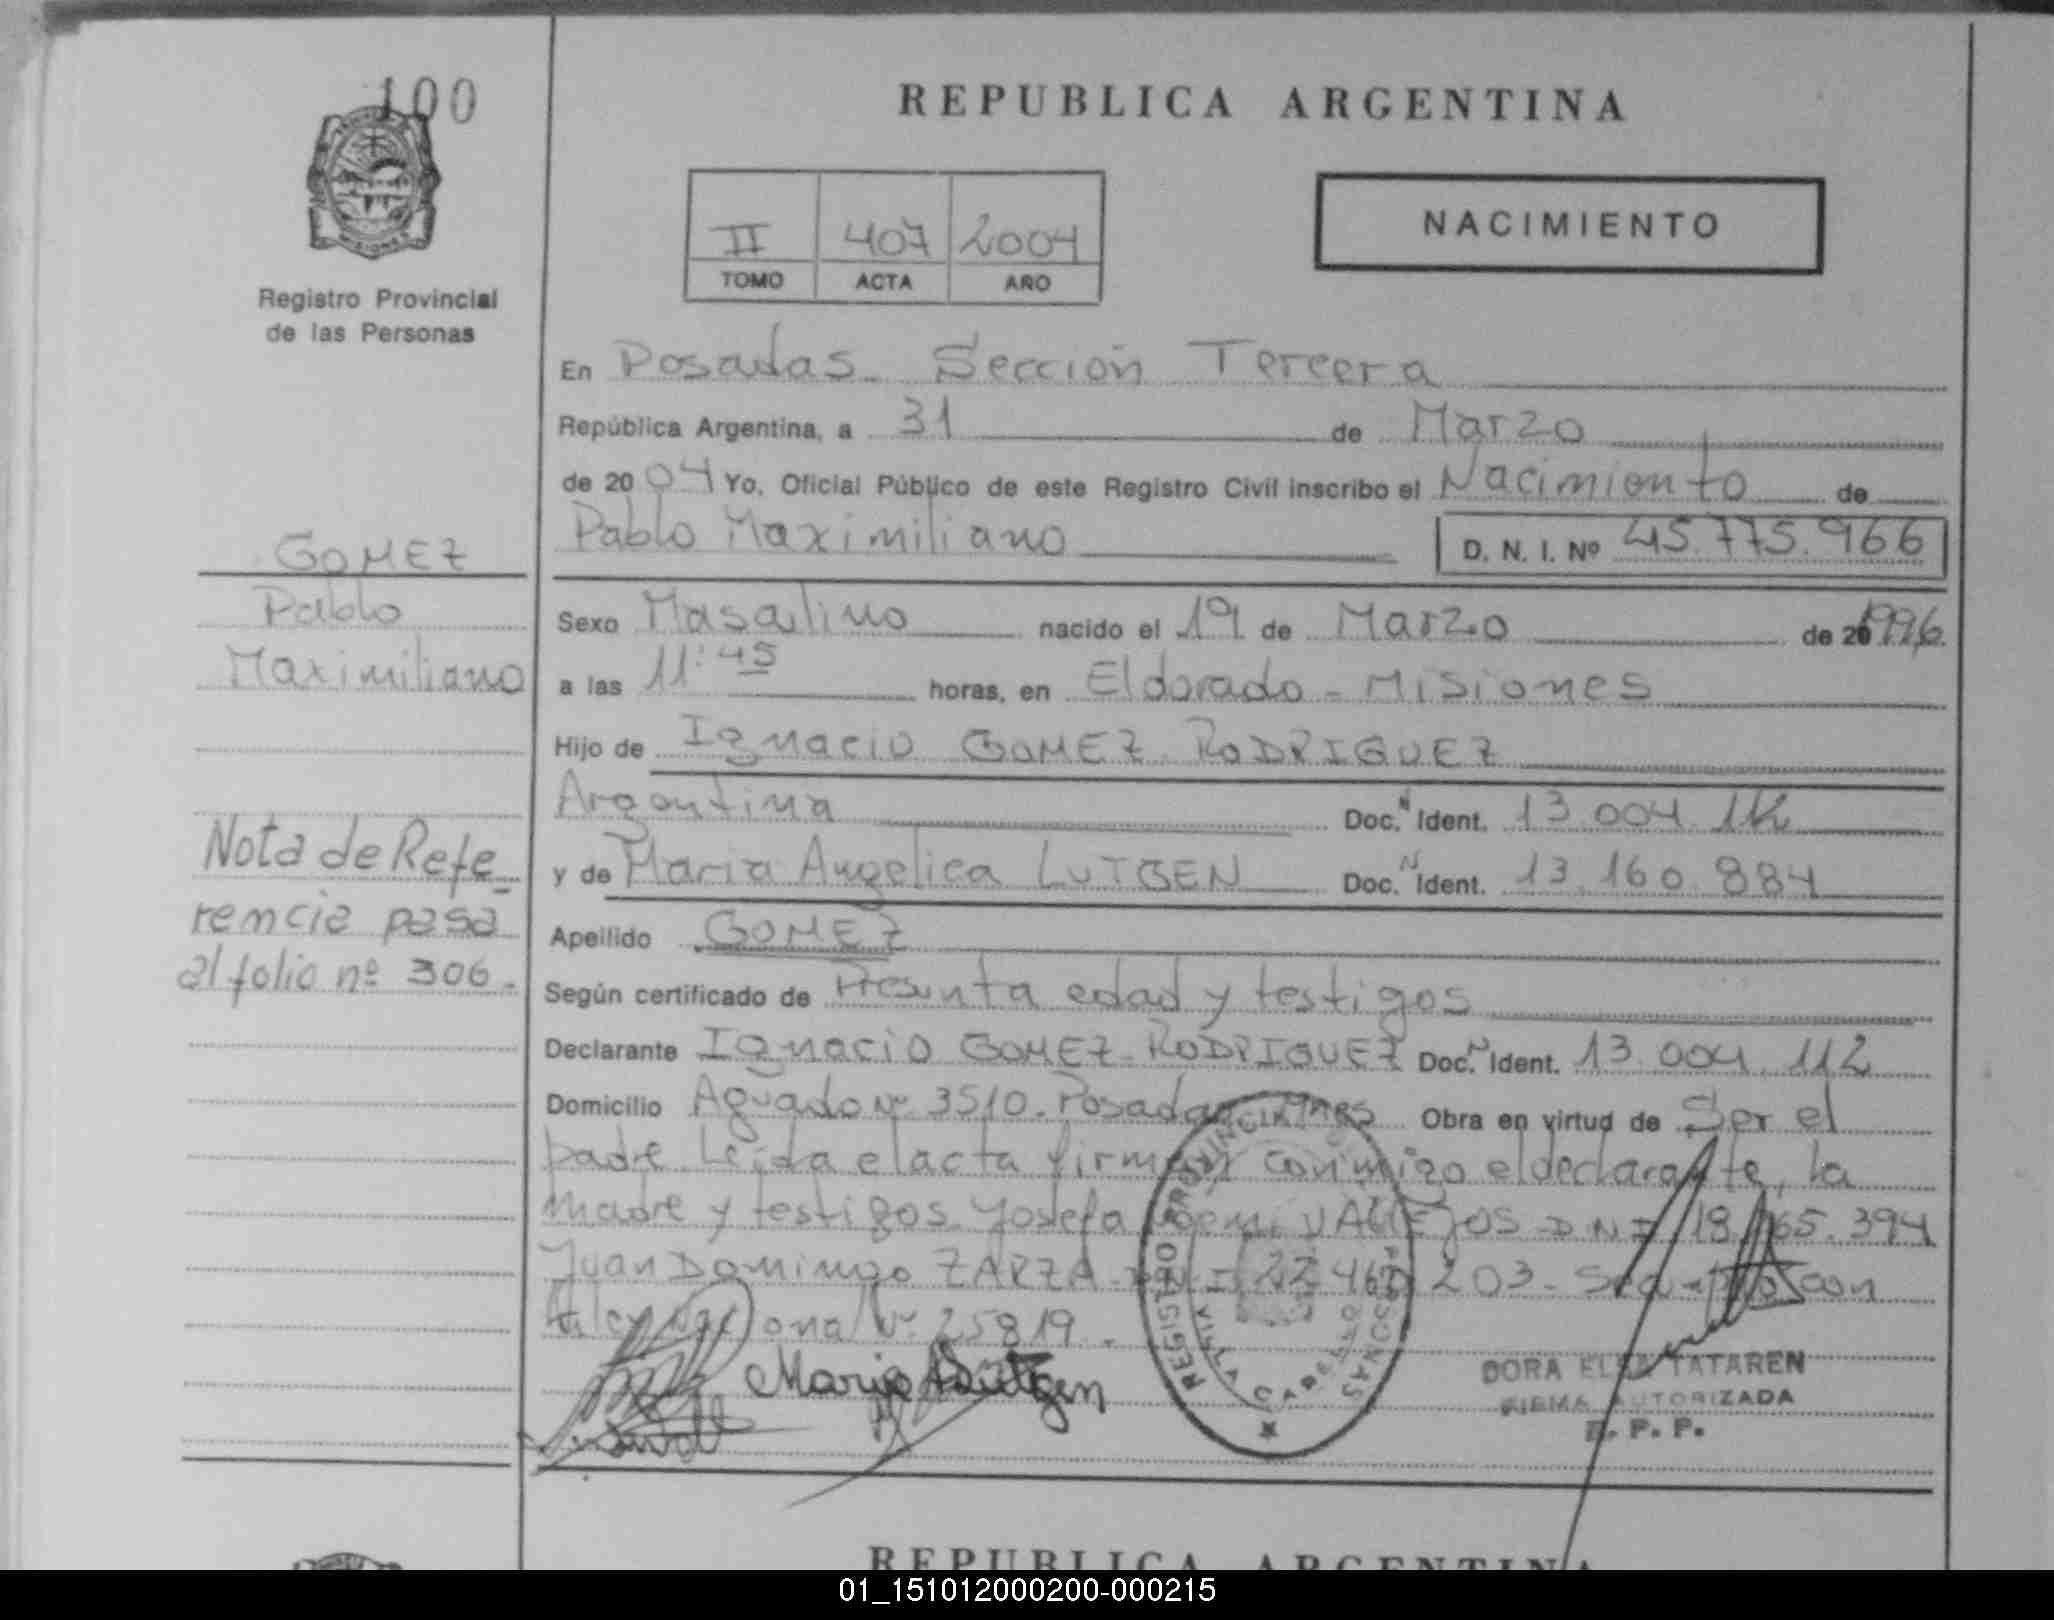 100
REPUBLICA ARGENTINA
II 407 2004
TOMO ACTA AÑO
NACIMIENTO
MISIONES
Registro Provincial
de las Personas
En Posadas Sección Tercera
República Argentina, a 31 de Marzo
de 2004 Yo, Oficial Público de este Registro Civil inscribo el Nacimiento de
Pablo Maximiliano D. N. I. Nº 45.775.966
GOMEZ
Pablo
Maximiliano
Sexo Masculino nacido el 19 de Marzo de 1996
a las 11:45 horas, en Eldorado - Misiones
Hijo de Ignacio GOMEZ RODRIGUEZ
Argentina Doc. N Ident. 13 004 112
y de Maria Angelica LUTGEN Doc. N Ident. 13.160.884
Apellido GOMEZ
Según certificado de Presunta edad y testigos
Declarante Ignacio GOMEZ RODRIGUEZ Doc. N Ident. 13.004.112
Domicilio Aguado Nº 3510. Posadas Mnes Obra en virtud de Ser el
padre Leida el acta firman conmigo el declarante, la
madre y testigos Josefa Noemi VALLEJOS D.N.I 18.765.394
Juan Domingo ZARZA D.N.I 22 460 203 -
Ley Nacional Nº 25819 -
Nota de Refe-
rencia pasa
al folio nº 306.
REGISTRO PROVINCIAL DE LAS PERSONAS
VILLA CABELLO
Maria A Lütgen
DORA ELSA TATAREN
FIRMA AUTORIZADA
R. P. P.
REPUBLICA ARGENTINA
01_151012000200-000215